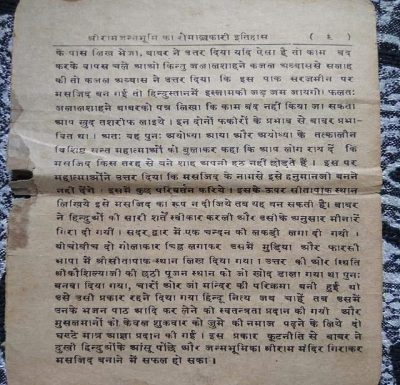 श्रीरामजन्मभूमि का रोमाञ्चकारी इतिहास ( ९ )
के पास लिख भेजा, बाबर ने उत्तर दिया यदि ऐसा है तो काम बंद
करके वापस चले आओ किन्तु जलालशाहने कजल अब्बाससे सलाह
की तो कजल अब्बास ने उत्तर दिया कि इस पाक सरजमीन पर
मसजिद बन गई तो हिन्दुस्तानमें इस्लामकी जड़ जम जायगी। फलतः
जलालशाहने बाबरको पत्र लिखा कि काम बंद नहीं किया जा सकता
आप खुद तशरीफ लाइये । इन दोनों फकीरों के प्रभाव से बाबर प्रभा-
वित था । अतः वह पुनः अयोध्या आया और अयोध्या के तत्कालीन
विशिष्ट सन्त महात्माओं को बुलाकर कहा कि आप लोग राय दें कि
मसजिद किस तरह से बने शाह अपनी हठ नहीं छोड़ते हैं । इस पर
महात्माओंने उत्तर दिया कि मसजिद के नामसे इसे हनुमानजी बनने
नहीं देंगे । इसमें कुछ परिवर्तन करिये । इसके ऊपर सीतापाक स्थान
लिखिये इसे मसजिद का रूप न दीजिये तब यह बन सकती है। बाबर
ने हिन्दुओं की सारी शर्तें स्वीकार करली और उसीके अनुसार मीनारें
गिरा दी गयीं । सदर द्वार में एक चन्दन की लकड़ी लगा दी गयी ।
बीचोबीच दो गोलाकार चिन्ह लगाकर उसमें मुड़िया और फारसी
भाषा में श्रीसीतापाक स्थान लिख दिया गया। उत्तर की ओर स्थिति
श्रीकौशिल्याजी की छठी पूजन स्थान को जो खोद डाला गया था पुनः
बनवा दिया गया, चारों ओर जो मन्दिर की परिक्रमा बनी हुई थी
उसे उसी प्रकार रहने दिया गया हिन्दू नित्य जब चाहें तब उसमें
उनके भजन पाठ आदि कर लेने को स्वतन्त्रता प्रदान की गयी और
मुसलमानों को केवल शुक्रवार को जुमे की नमाज पढ़ने के लिये दो
घण्टे मात्र आज्ञा प्रदान की गई । इस प्रकार कूटनीति से बाबर ने
दुखी हिन्दुओंके आंसू पोंछे और जन्मभूमिका श्रीराम मंदिर गिराकर
मसजिद बनाने में सफल हो सका ।